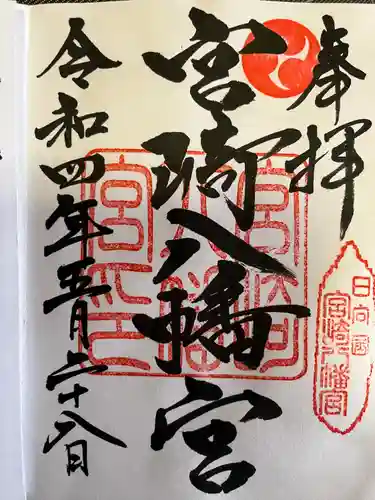 奉拝
日向国
宮崎八幡宮
宮崎八幡宮
令和四年五月二十八日